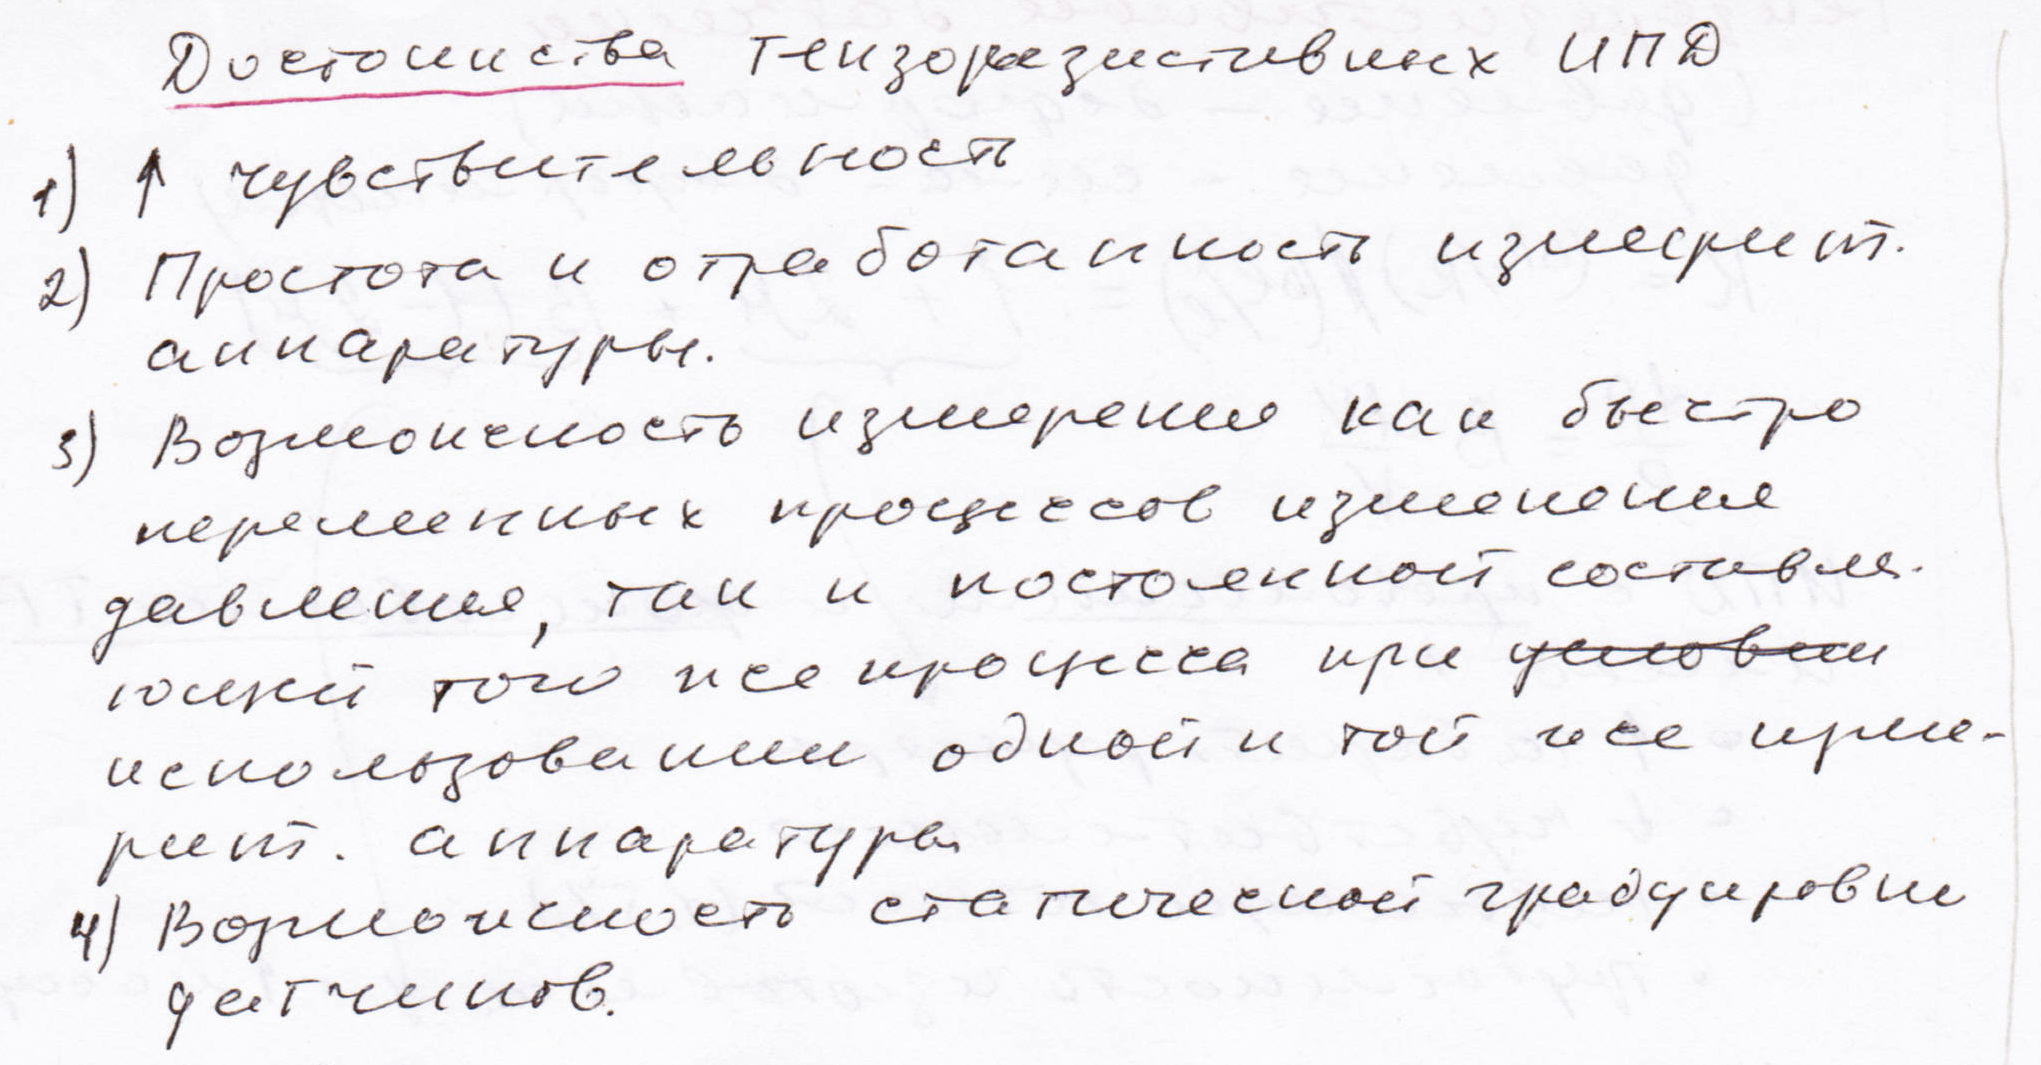 Достоинства тензорезистивных ИПД
1) ↑ чувствительность
2) Простота и отработанность измерит.
аппаратуры.
3) Возможность измерения как быстро
переменных процессов изменения
давления, так и постоянной составля-
ющей того же процесса при условии
использовании одной и той же изме-
рит. аппаратуры
4) Возможность статической градуировки
датчиков.